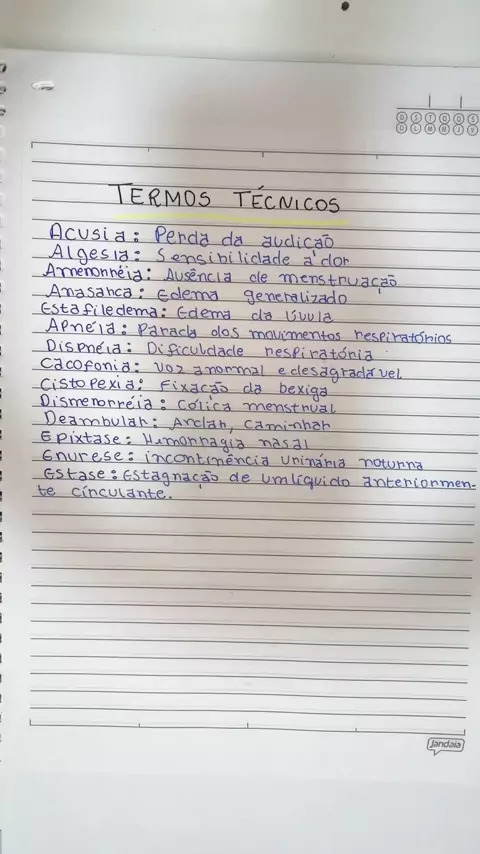 D S T Q Q S
D L M M J V
TERMOS TÉCNICOS
Acusia: Perda da audição
Algesia: Sensibilidade a dor
Amenorréia: Ausência de menstruação
Anasarca: Edema generalizado
Estafiledema: Edema da úvula
Apnéia: Parada dos movimentos respiratórios
Dispnéia: Dificuldade respiratória
Cacofonia: voz anormal e desagradável
Cistopexia: Fixação da bexiga
Dismenorréia: Cólica menstrual
Deambular: Andar, caminhar
Epixtase: Hemorragia nasal
Enurese: incontinência urinária noturna
Estase: Estagnação de um líquido anteriormen-
te circulante.
Jandaia